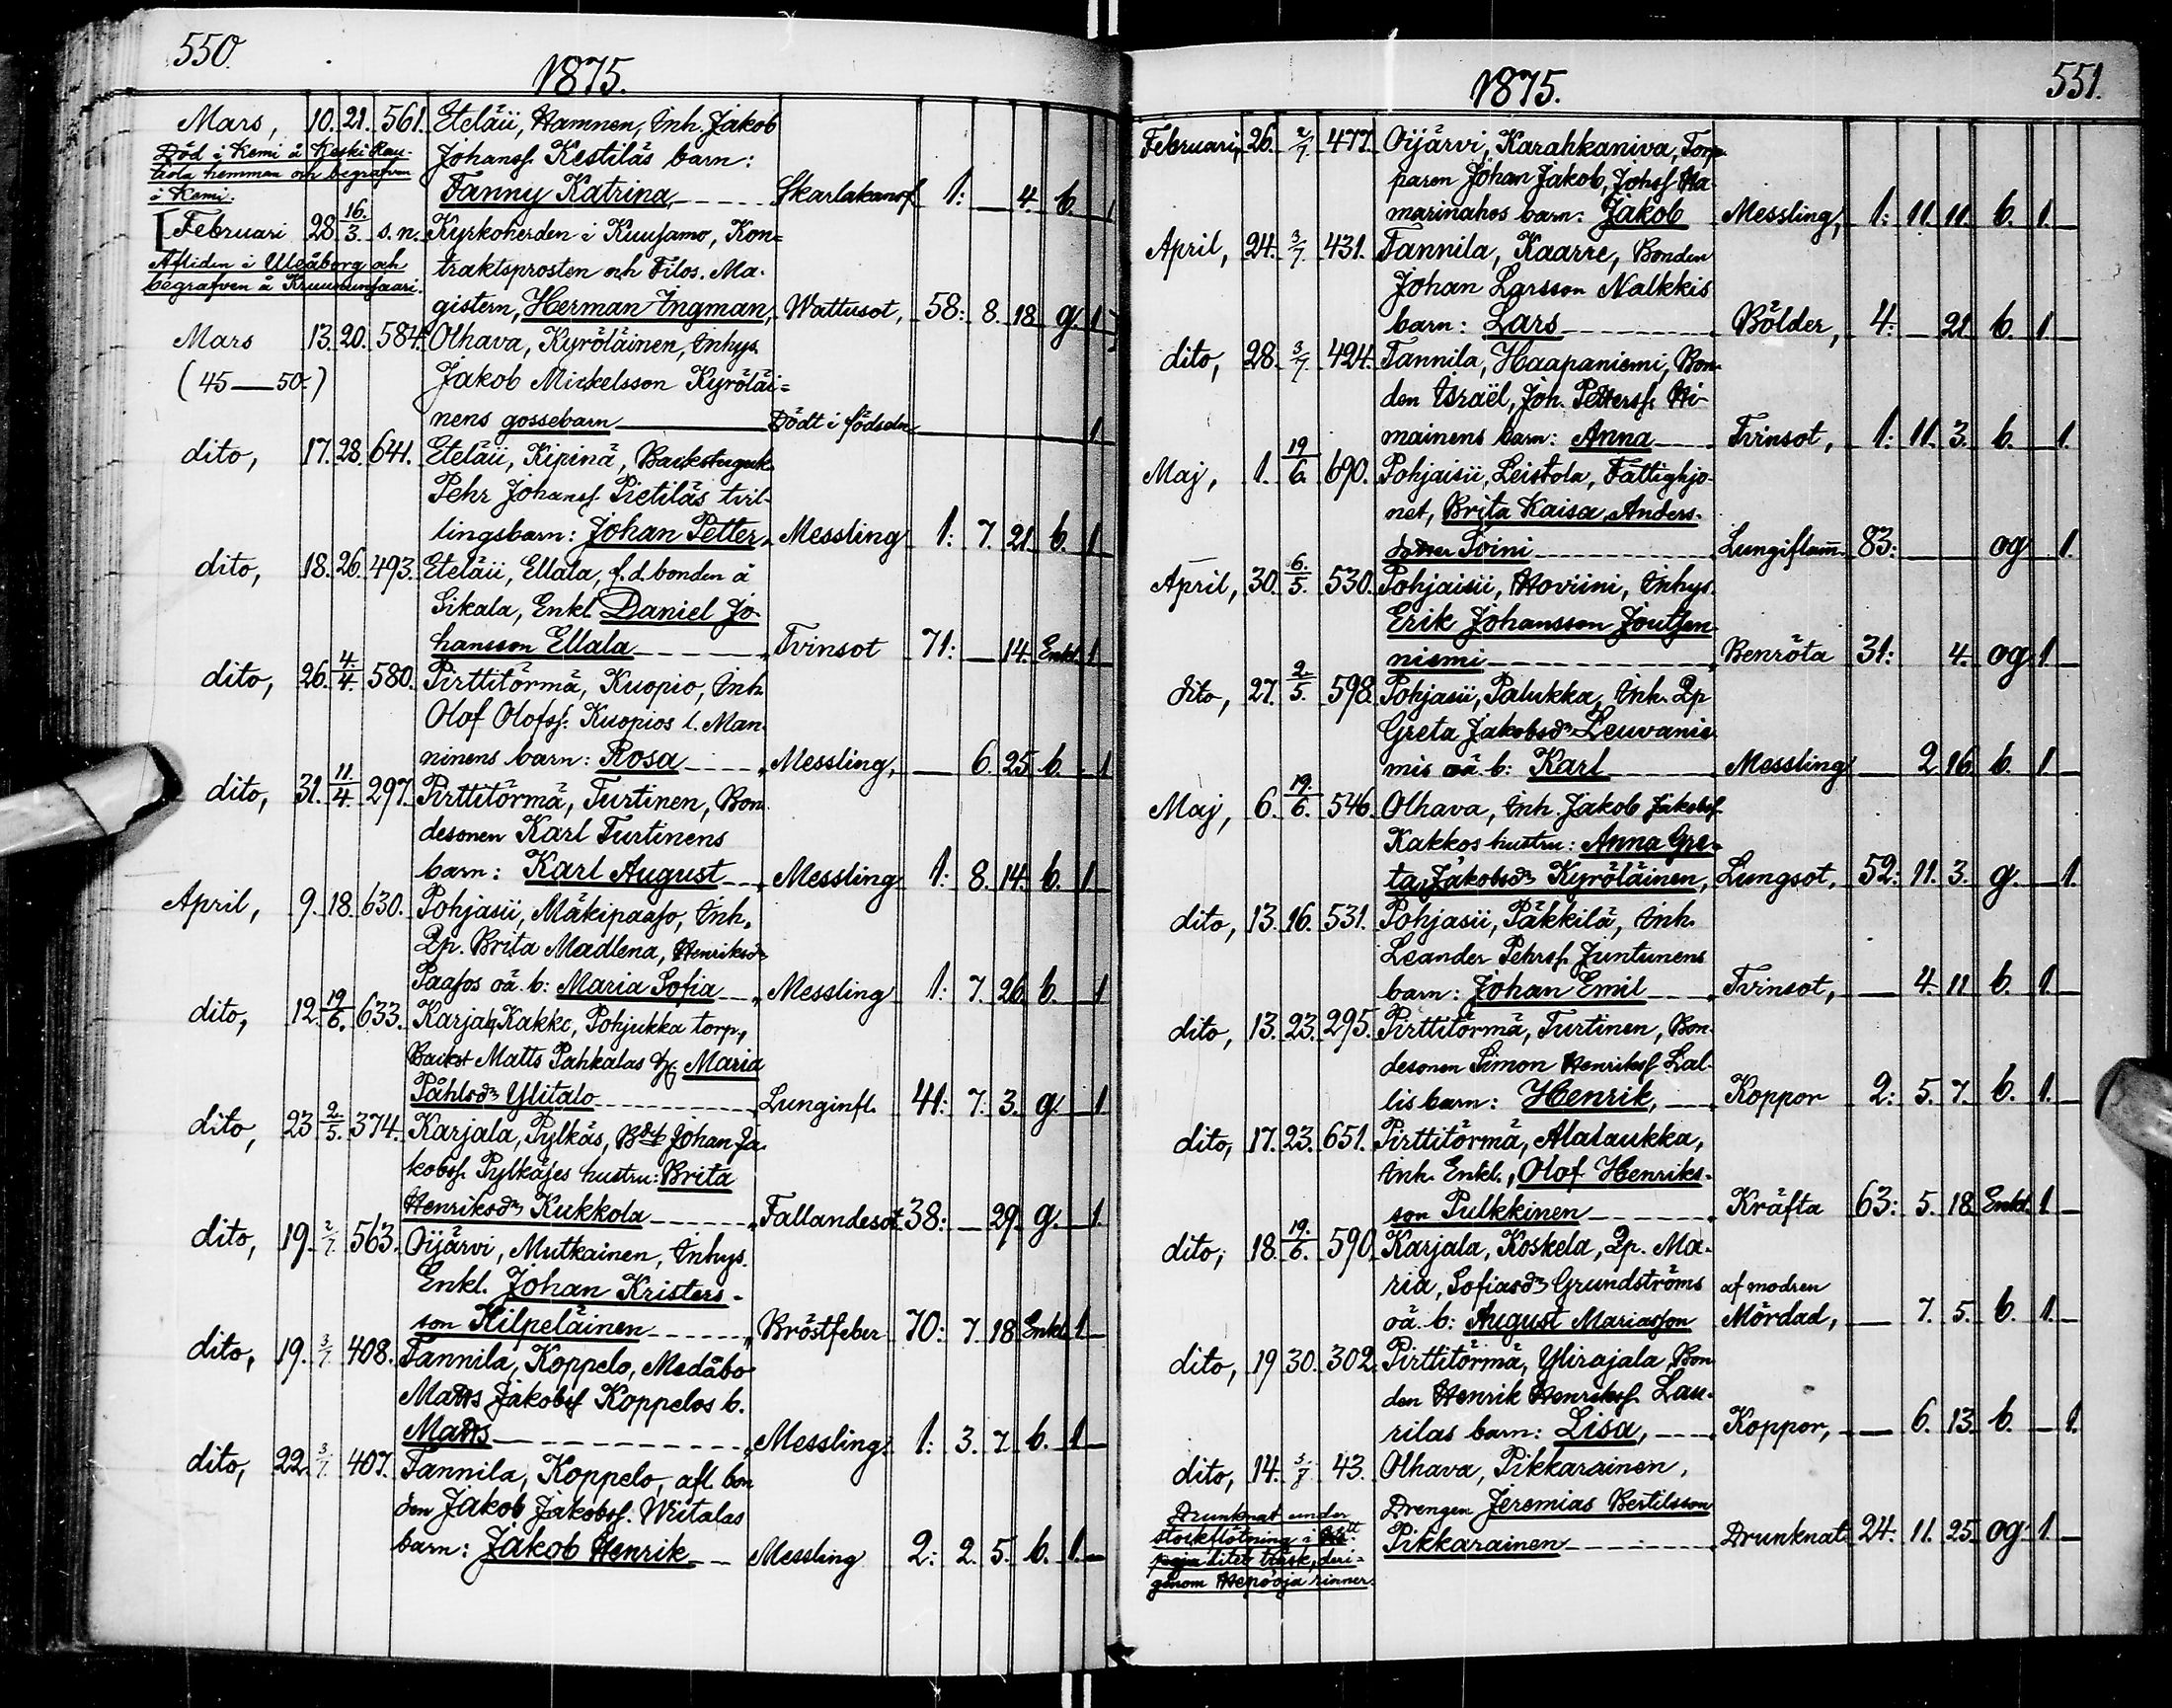 550.
1875.
Mars, 10. 21. 561. Eteläii, Hamnen, Inh. Jakob
Död i Kemi å Keski Rau- Johanss. Kestiläs barn:
tiola hemman och begrafven
i Kemi. Fanny Katrina, Skarlakansf. 1: — 4. b. 1
[Februari 28 16./3. s. n. Kyrkoherden i Kuusamo, Kon=
Afliden i Uleåborg och traktsprosten och Filos. Ma-
begrafven å Kruununsaari. gistern, Herman Ingman, Wattusot, 58: 8. 18 g. 1]
Mars 13. 20. 584. Olhava, Kyröläinen, Inhys.
(45—50.) Jakob Mickelsson Kyröläi=
nens gossebarn Dödt i födseln 1
dito, 17. 28. 641. Eteläii, Kipinä, Backstuguh.
Pehr Johanss. Pietiläs tvil-
lingsbarn: Johan Petter, Messling 1: 7. 21. b. 1
dito, 18. 26. 493. Eteläii, Ellala, f. d. bonden å
Sikala, Enkl. Daniel Jo-
hansson Ellala Tvinsot 71: — 14. Enkl. 1
dito, 26. 4./4. 580. Pirttitörmä, Kuopio, Inh.
Olof Olofss. Kuopios l. Man-
ninens barn: Rosa Messling, — 6. 25. b. 1
dito, 31. 11./4. 297. Pirttitörmä, Turtinen, Bon-
desonen Karl Turtinens
barn: Karl August Messling 1: 8. 14. b. 1
April, 9. 18. 630. Pohjasii, Mäkipaaso, Inh.
Qp. Brita Madlena, Henriksdr
Paasos oä. b: Maria Sofia Messling 1: 7. 26. b. 1
dito, 12. 19/6. 633. Karjala, Kakko, Pohjukka torp,
Backst Matts Pahkalas h: Maria
Påhlsdr Ylitalo Lunginfl. 41: 7. 3. g. 1
dito, 23 2./5. 374. Karjala, Pylkäs, Bd Johan Ja-
kobss. Pylkäses hustru: Brita
Henriksdr Kukkola Fallandesot 38: — 29. g. 1.
dito, 19. 2/7. 563. Oijärvi, Mutkainen, Inhys.
Enkl. Johan Kristers-
son Kilpeläinen Bröstfeber 70: 7. 18 Enkl. 1
dito, 19. 3/7. 408. Tannila, Koppelo, Medåbo
Matts Jakobss Koppelos b.
Matts Messling. 1: 3. 7. b. 1
dito, 22. 3/7. 407. Tannila, Koppelo, afl. bon
den Jakob Jakobss. Wiitalas
barn: Jakob Henrik Messling 2: 2. 5. b. 1.
551.
1875.
Februari, 26. 2/7. 477. Oijärvi, Karahkaniva, Torp-
paren Johan Jakob, Johss Ha-
marinahos barn: Jakob Messling, 1: 11. 11. b. 1.
April, 24. 3/7. 431. Tannila, Kaarre, Bonden
Johan Larsson Nalkkis
barn: Lars Bölder, 4: — 21. b. 1.
dito, 28. 3/7. 424. Tannila, Haapaniemi, Bon-
den Israël, Joh. Petterss. Hi-
mainens barn: Anna Tvinsot, 1: 11. 3. b. 1.
Maj, 1. 19/6. 690. Pohjaisii, Leistola, Fattighjo-
net, Brita Kaisa, Anders-
dotter Soini Lungiflam. 83: og 1.
April, 30. 6./5. 530. Pohjaisii, Hoviini, Inhys.
Erik Johansson Joutsen-
niemi Benröta 31: 4. og 1.
dito, 27. 2./5. 598. Pohjasii, Palukka, Inh. Qp
Greta Jakobsdr Leuvanie-
mis oä. b: Karl Messling — 2 16 b. 1.
Maj, 6. 19./6. 546. Olhava, Inh. Jakob Jakobss.
Kakkos hustru: Anna Gre-
ta, Jakobsdr Kyröläinen, Lungsot, 52: 11. 3. g. 1.
dito, 13. 16. 531. Pohjasii, Päkkilä, Inh.
Leander Pehrss. Juntunens
barn: Johan Emil Tvinsot, — 4. 11 b. 1.
dito, 13. 23. 295. Pirttitörmä, Turtinen, Bon-
desonen Simon Henrikss Lal-
lis barn: Henrik, Koppor 2: 5. 7. b. 1.
dito, 17. 23. 651. Pirttitörmä, Alalaukka,
Inh. Enkl., Olof Henriks-
son Pulkkinen Kräfta 63: 5. 18 Enkl. 1.
dito, 18. 19./6. 590. Karjala, Koskela, Qp. Ma-
ria, Sofiasdr Grundströms af modren
oä. b: August Mariasson Mördad, — 7. 5. b. 1.
dito, 19 30. 302. Pirttitörmä, Ylirajala, Bon
den Henrik Henrikss. Lau-
rilas barn: Lisa, Koppor, — 6. 13. b. 1.
dito, 14. 5./7. 43. Olhava, Pikkarainen,
Drunknat under Drengen Jeremias Bertilsson
stockflötning i
Pikkarainen Drunknat 24: 11. 25. og. 1.
litet träsk, deri-
genom Hepooja rinner.